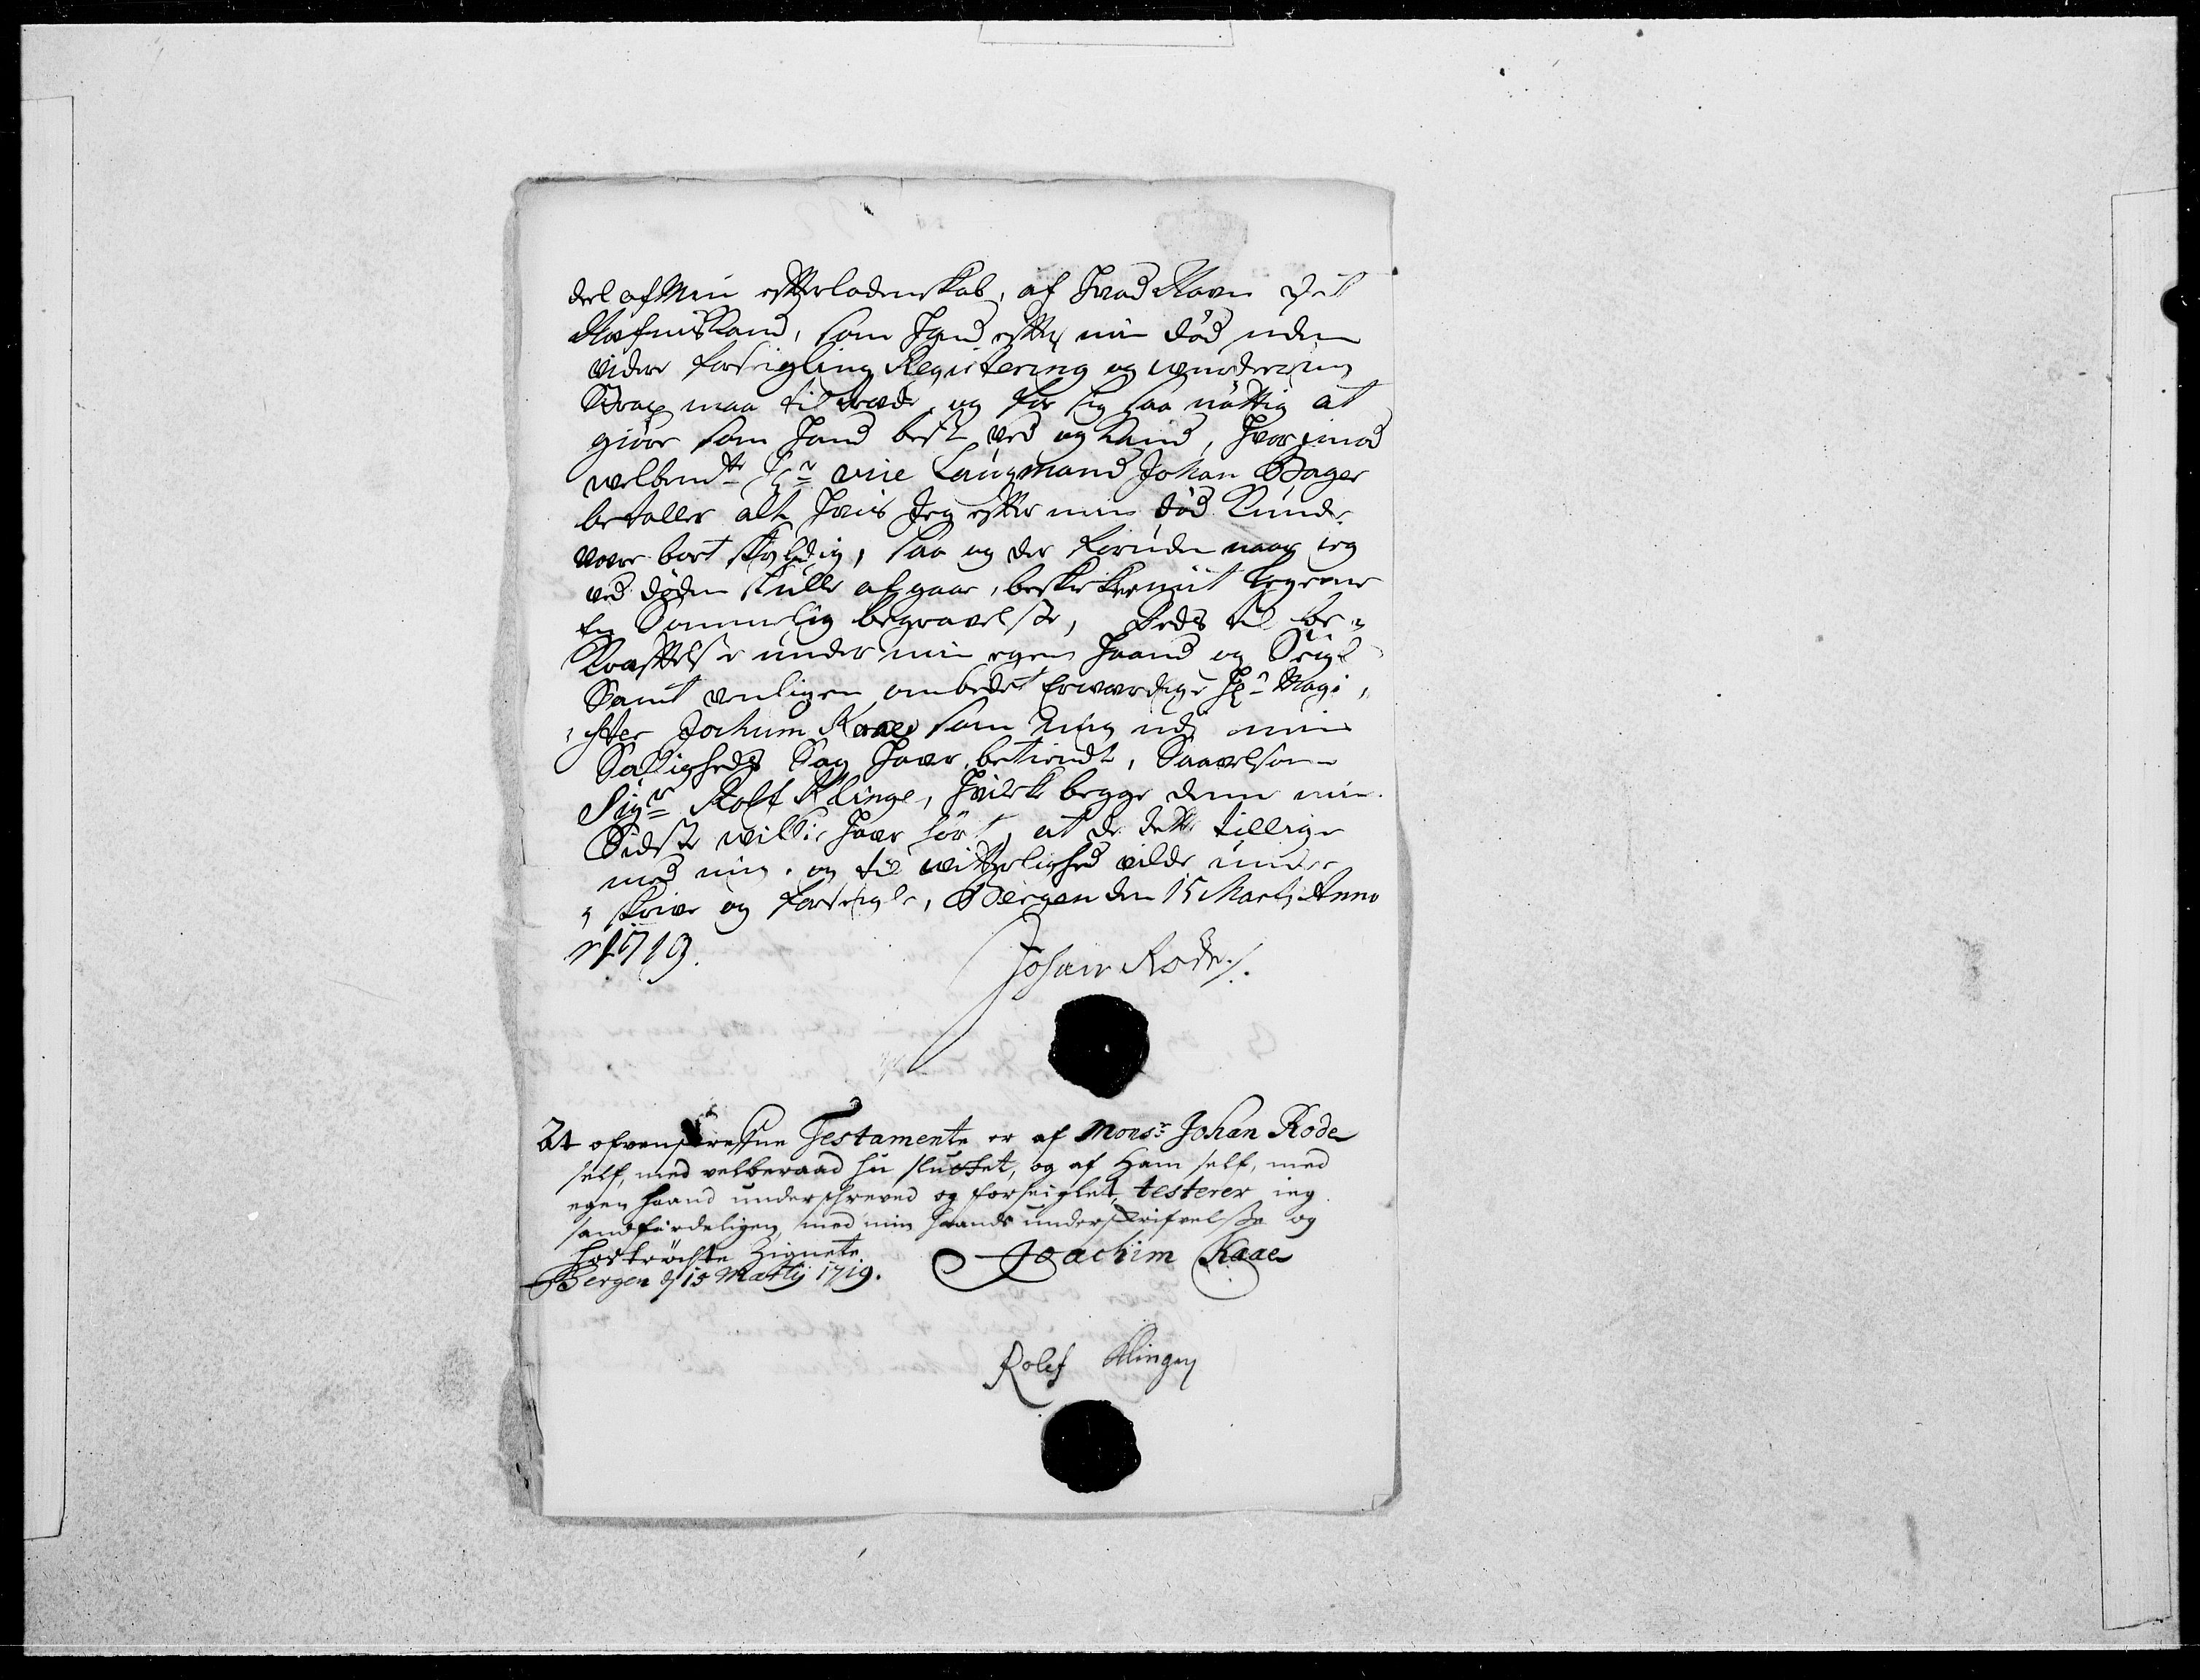 deel af Min efterladenskab, af hvad Navn det
Nafnis Kand, som hand efter min død uden
vidre forseigling Registering og wurdering
Strax maa tiltræde, og for sig saa nøttig at
giøre som hand best ved og Kand, hvorjmod
welbemte Hr vice Laugmand Johan Bager
betaller alt hvis Jeg efter min død Kunde
være bort skyldig, saa og der foruden naar ieg
ved døden skulle afgaae, beskicker mit Legeme
En Sømmelig begravelse, Deds til be„
Kræftelse under min egen haand og Seigl
Samt venligen ombedet Erværdige Hr Magi„
„ster Jochum Kaae som mig udj min
Salligheds Sag haver betiendt, Saavelsom
Sigr Rolf Klinge, hvilcke begge denne min
Sidste willie haver hørt, at de dette tillige
med mig og til witterlighed vilde under
„skrive og forseigle, Bergen den 15 Martj Anno
1719.
Johan Rode
At ofvenskrefne Testamente er af Monsr: Johan Rode
self, med velberaad hu sluttet, og af Ham self, med
egen haand underschreved og forseiglet, testerer ieg
sandfærdeligen, med min haands underskrifvelsse og
hostrøchte Zignete
Bergen d 15 Martij 1719. Joachim Kaae
Rolef Klingen